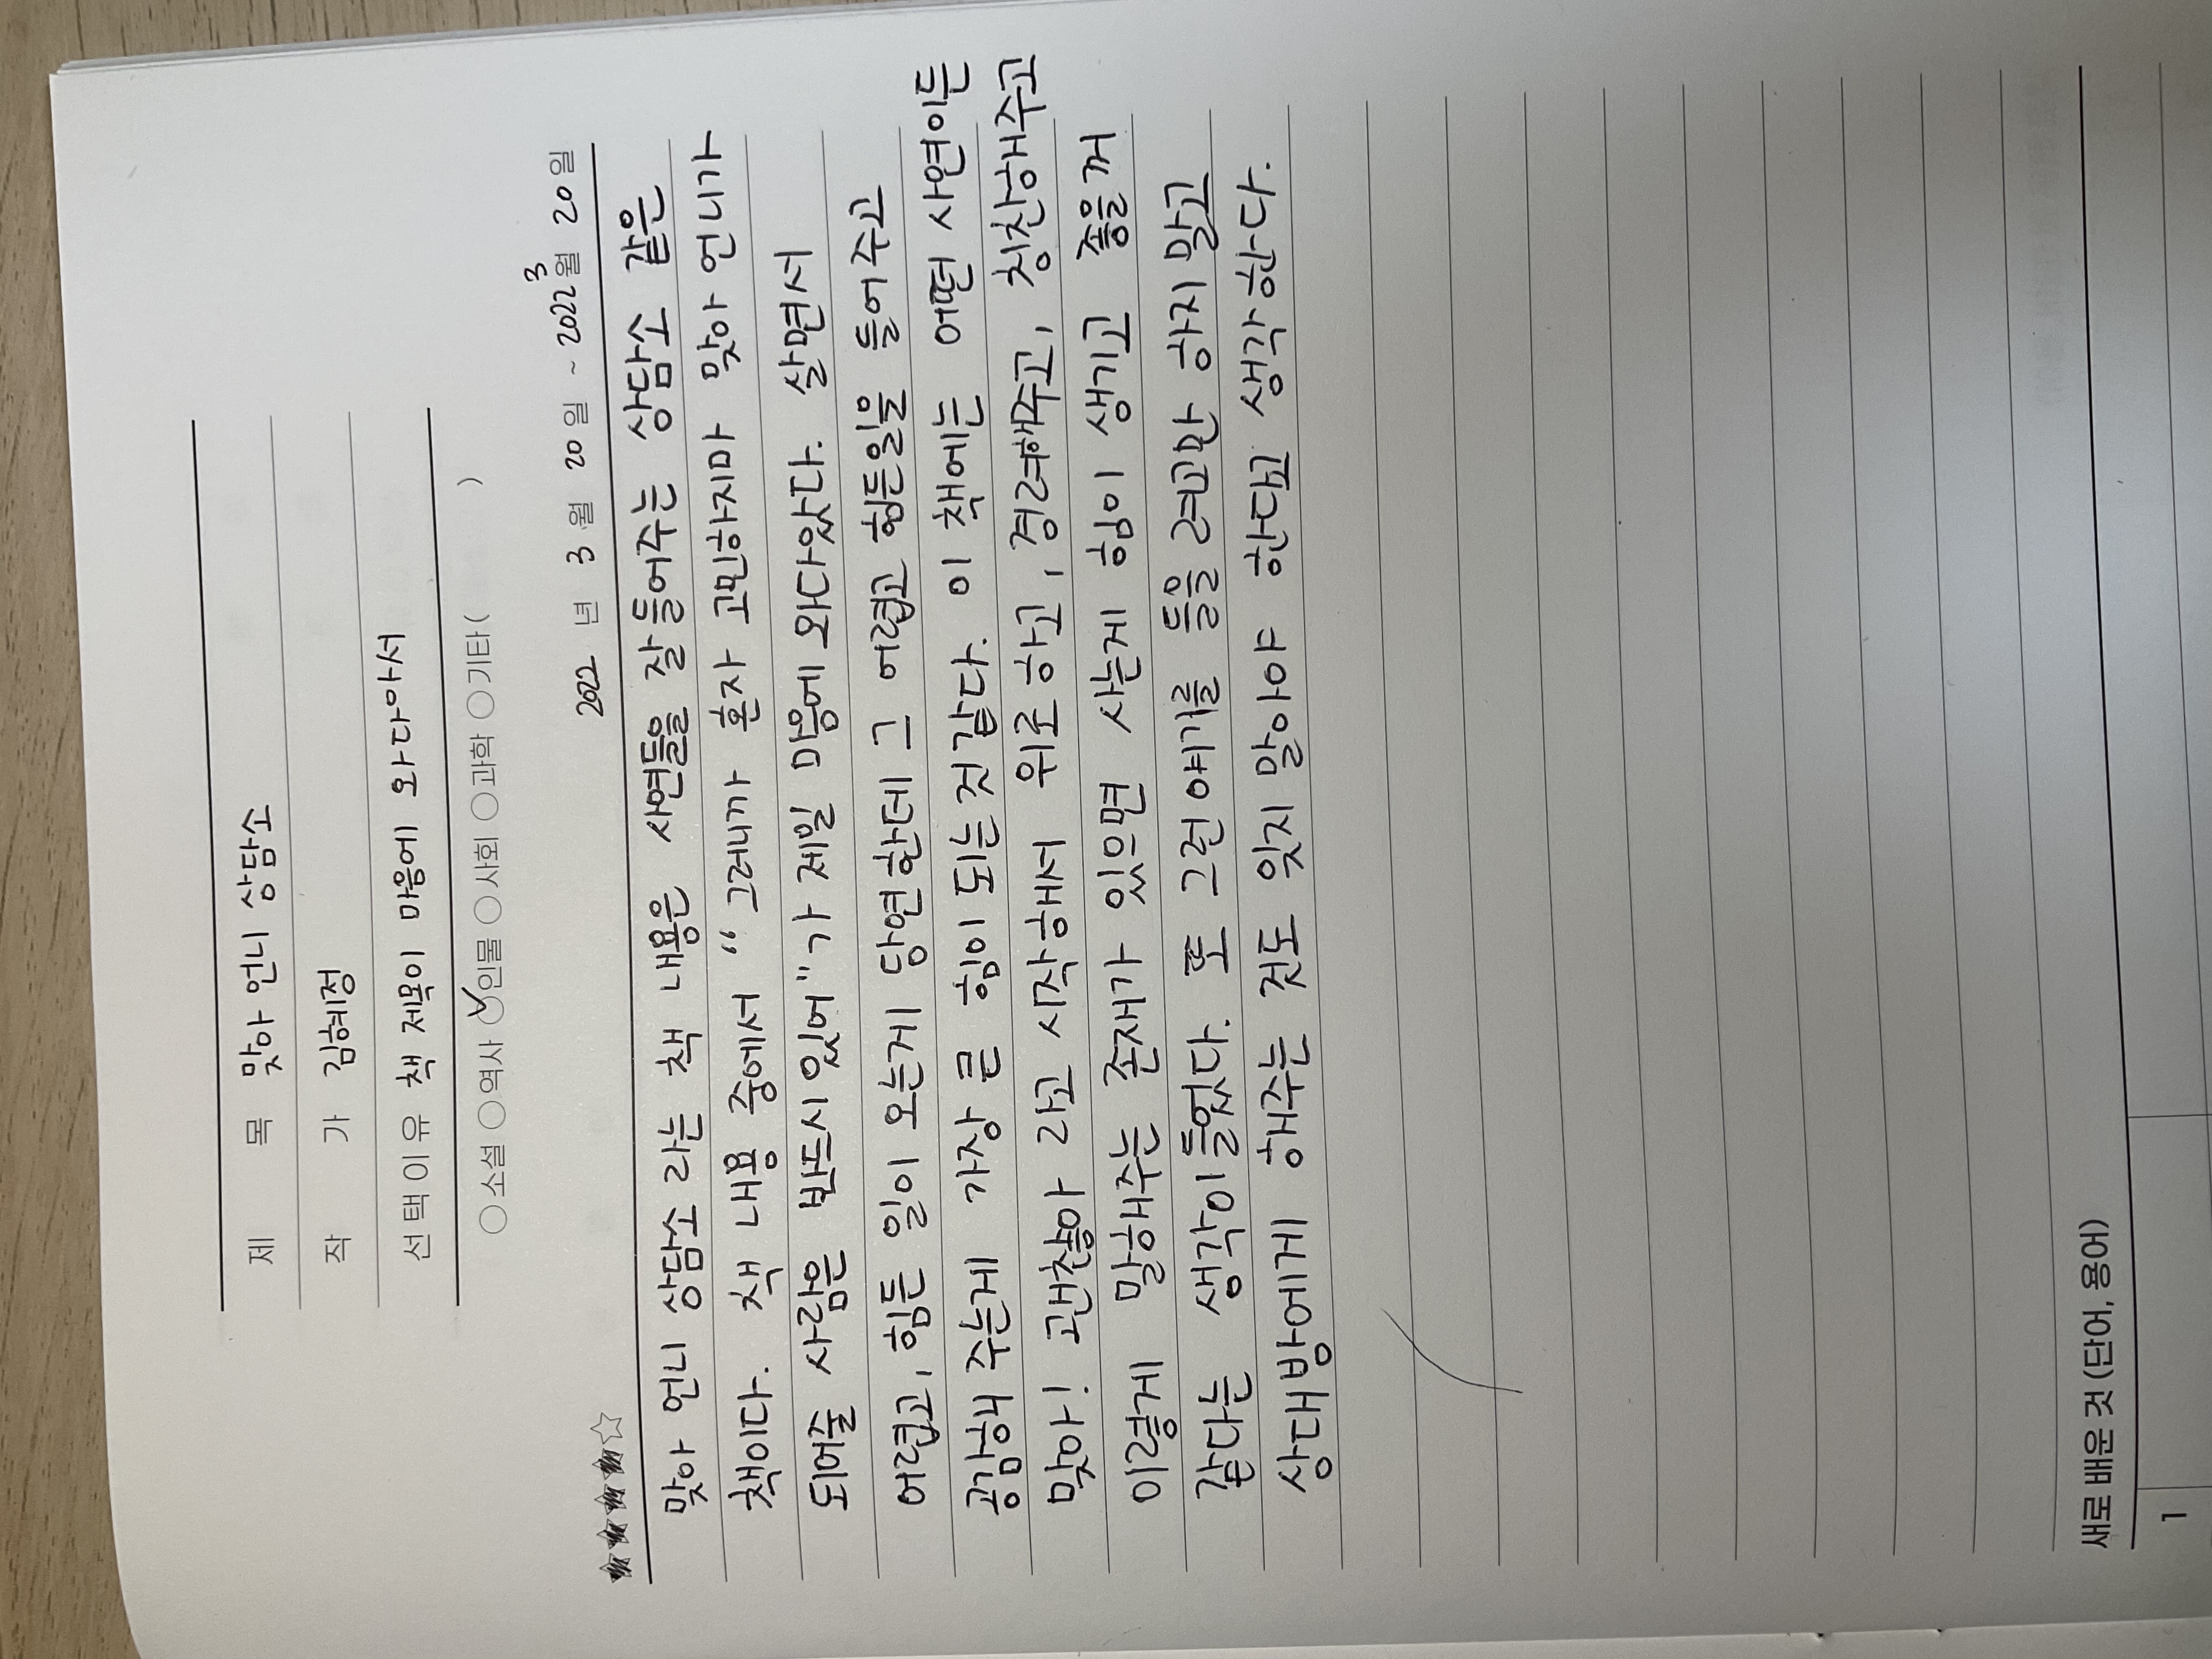 제 목 맞아 언니 상담소
작 가 김혜정
선택이유 책 제목이 마음에 와다아서
소설 역사 인물 사회 과학 기타( )
2022 년 3 월 20 일 ~ 2022 3월 20 일
맞아 언니 상담소 라는 책 내용은 사연들을 잘 들어주는 상담소 같은
책이다. 책 내용 중에서 “그러니까 혼자 고민하지마 맞아 언니가
되어줄 사람은 반드시 있어"가 제일 마음에 와다았다. 살면서
어렵고, 힘든 일이 오는게 당연한데 그 어렵고 힘든일을 들어주고
공감해 주는게 가장 큰 힘이 되는것 같다. 이 책에는 어떤 사연이든
맞아! 괜찮아 라고 시작해서 위로 하고, 경려해주고, 칭찬해주고
이렇게 말해주는 존재가 있으면 사는게 힘이 생기고 좋을꺼
같다는 생각이 들었다. 또 그런 얘기를 들을 려고만 하지 말고
상대방에게 해주는 것도 잊지 말아야 한다고 생각한다.
새로 배운 것 (단어, 용어)
1